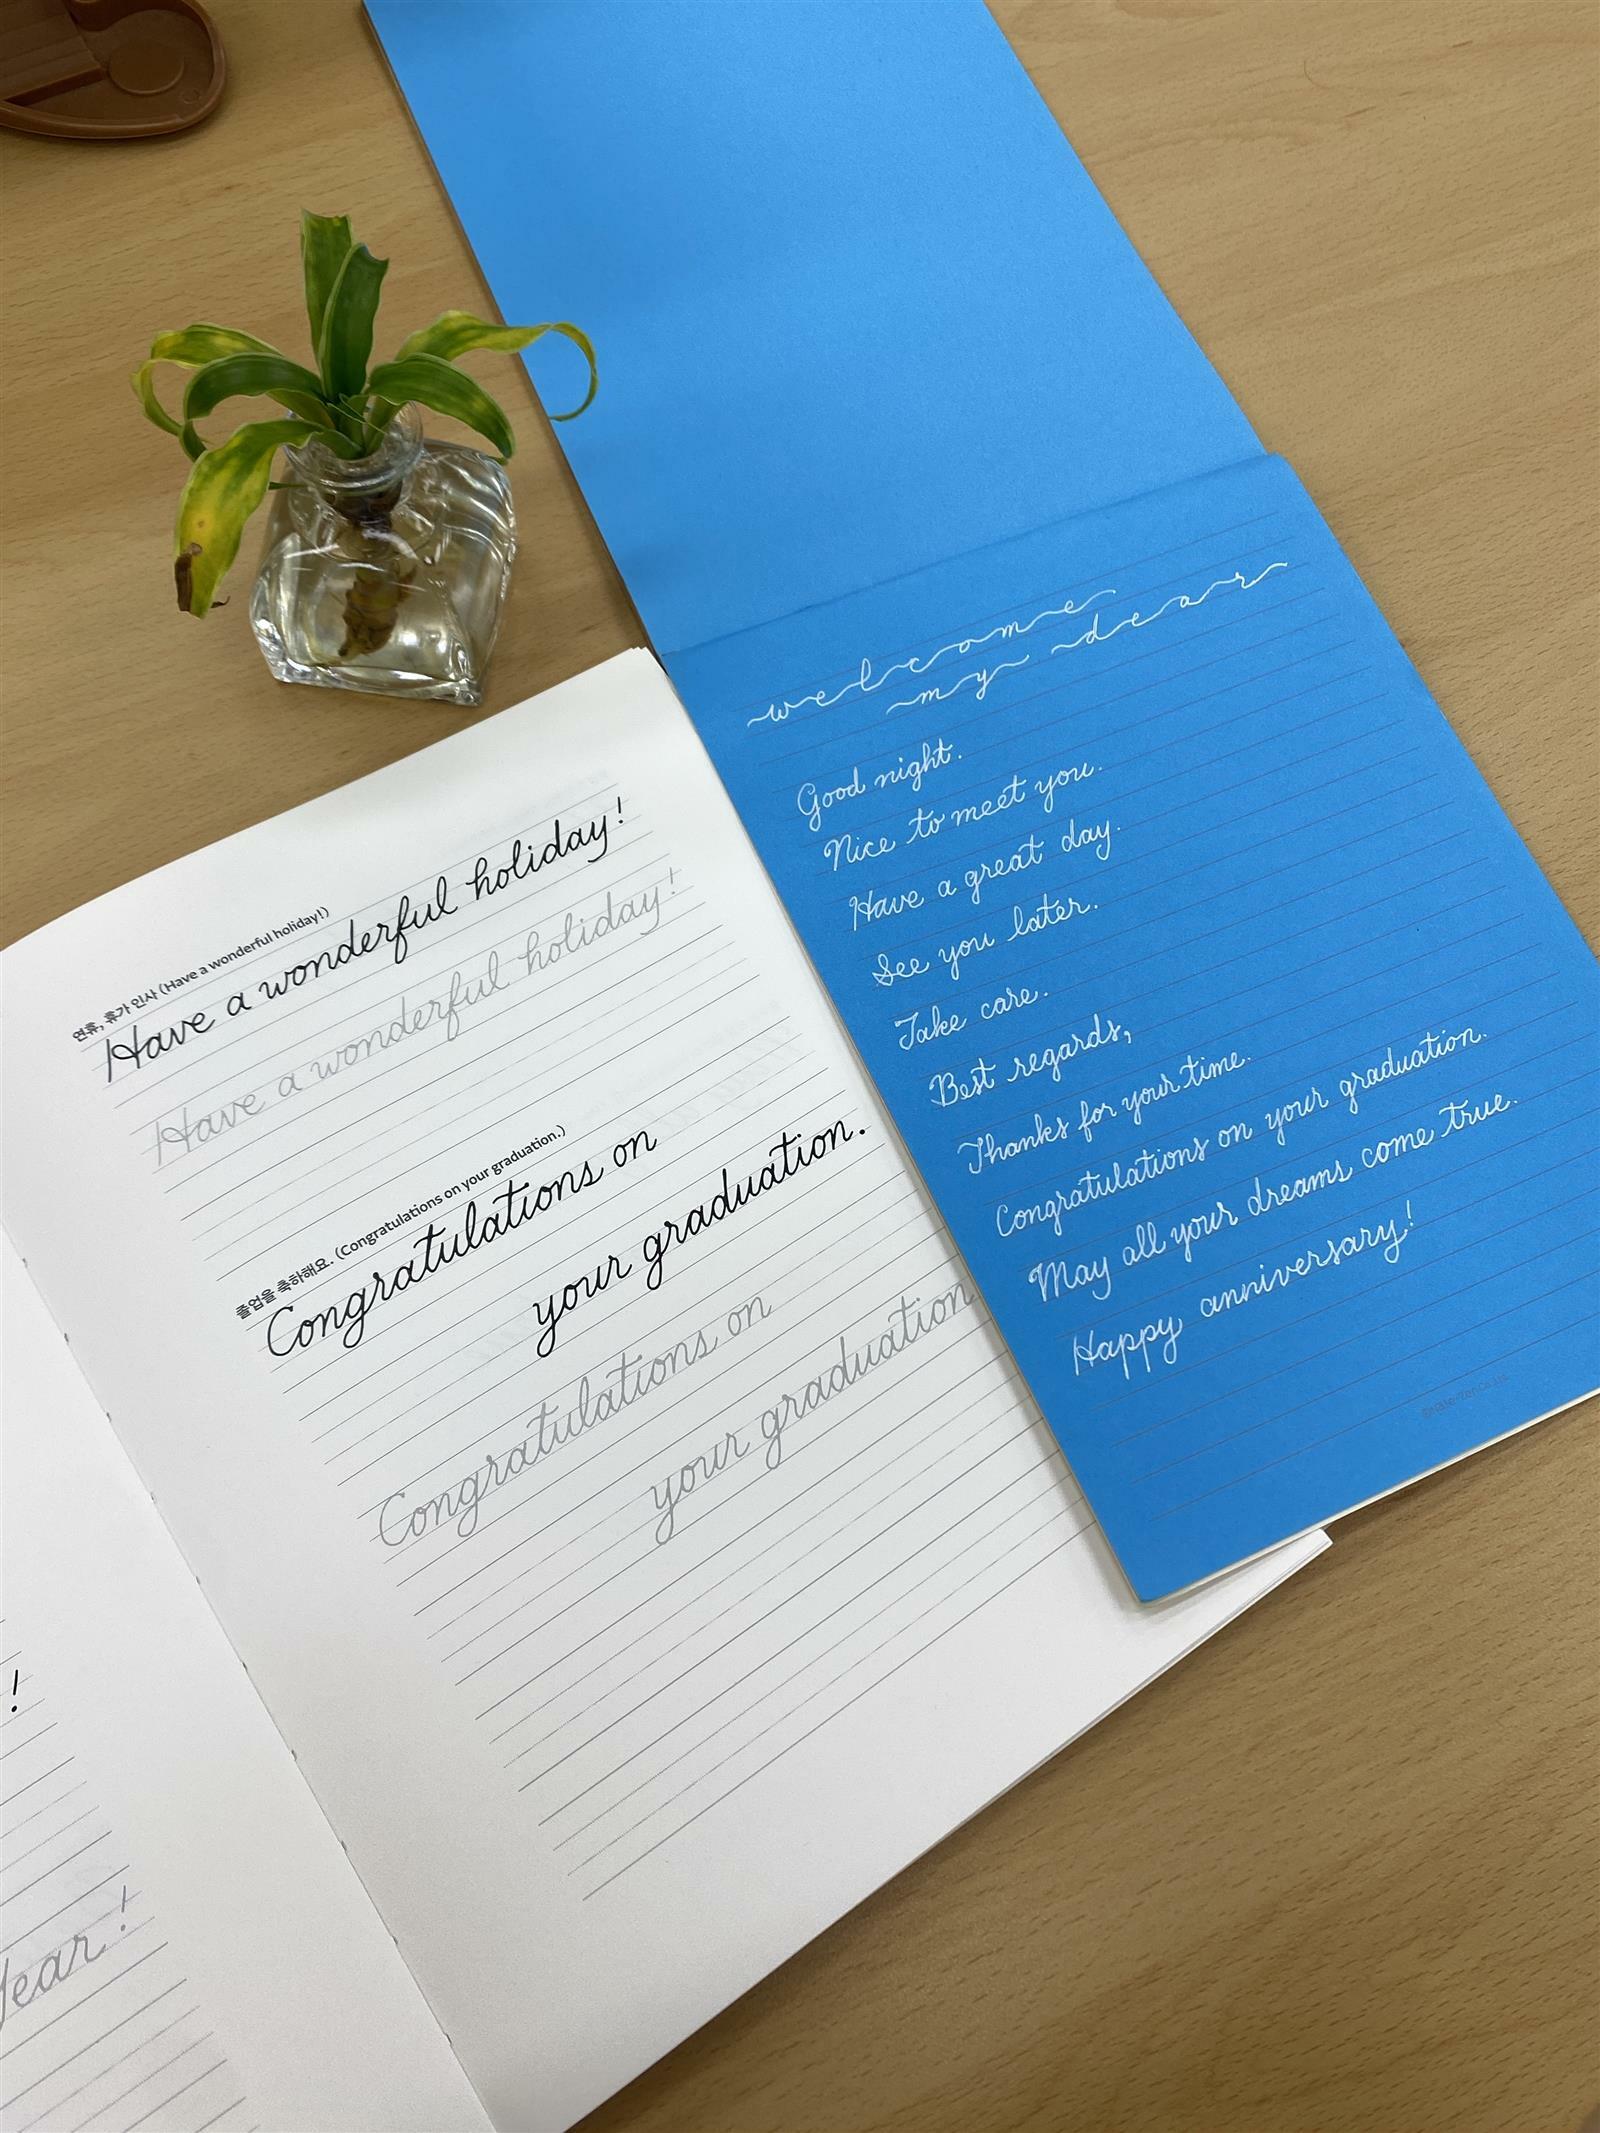 연휴, 휴가 인사 (Have a wonderful holiday!)
Have a wonderful holiday!
Have a wonderful holiday!
졸업을 축하해요. (Congratulations on your graduation.)
Congratulations on
your graduation.
Congratulations on
your graduation
!
Year!
welcome
my dear
Good night.
Nice to meet you.
Have a great day.
See you later.
Take care.
Best regards,
Thanks for your time.
Congratulations on your graduation.
May all your dreams come true.
Happy anniversary!